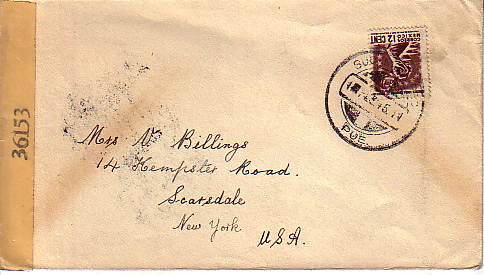 CORREOS
MEXICO 12 CENT
PUE
36153
Mrs V. Billings
14 Hempster Road.
Scarsdale
New York
U.S.A.